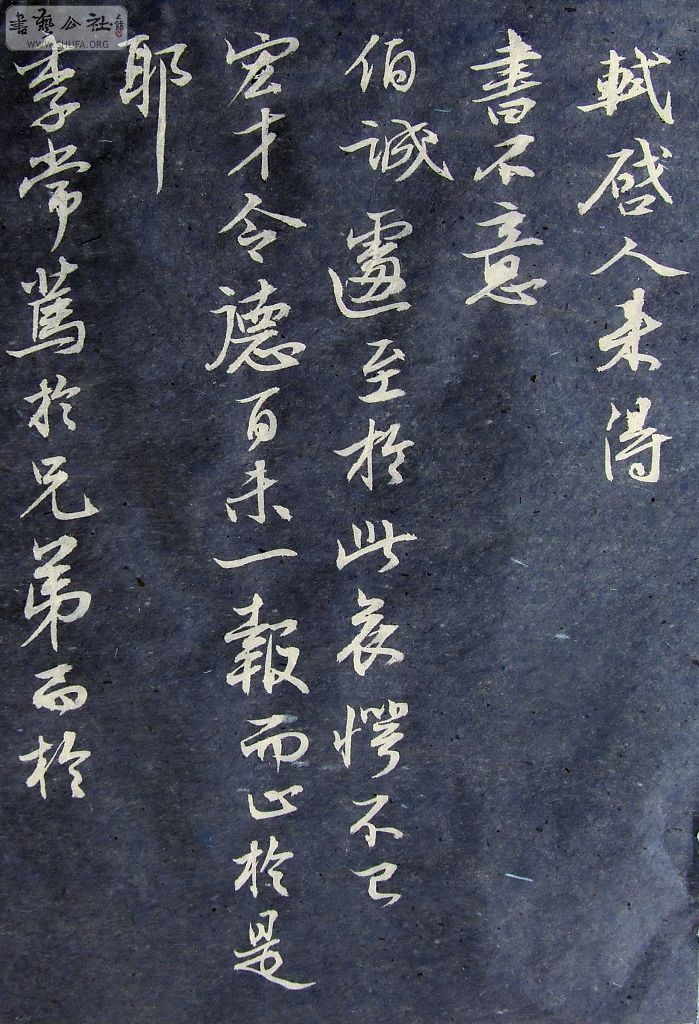 軾启人来得
書不意
伯誠遽至於此哀愕不已
宏才令德百未一報而止於是
耶
季常篤於兄弟而於
書藝公社
WWW.SHUFA.ORG